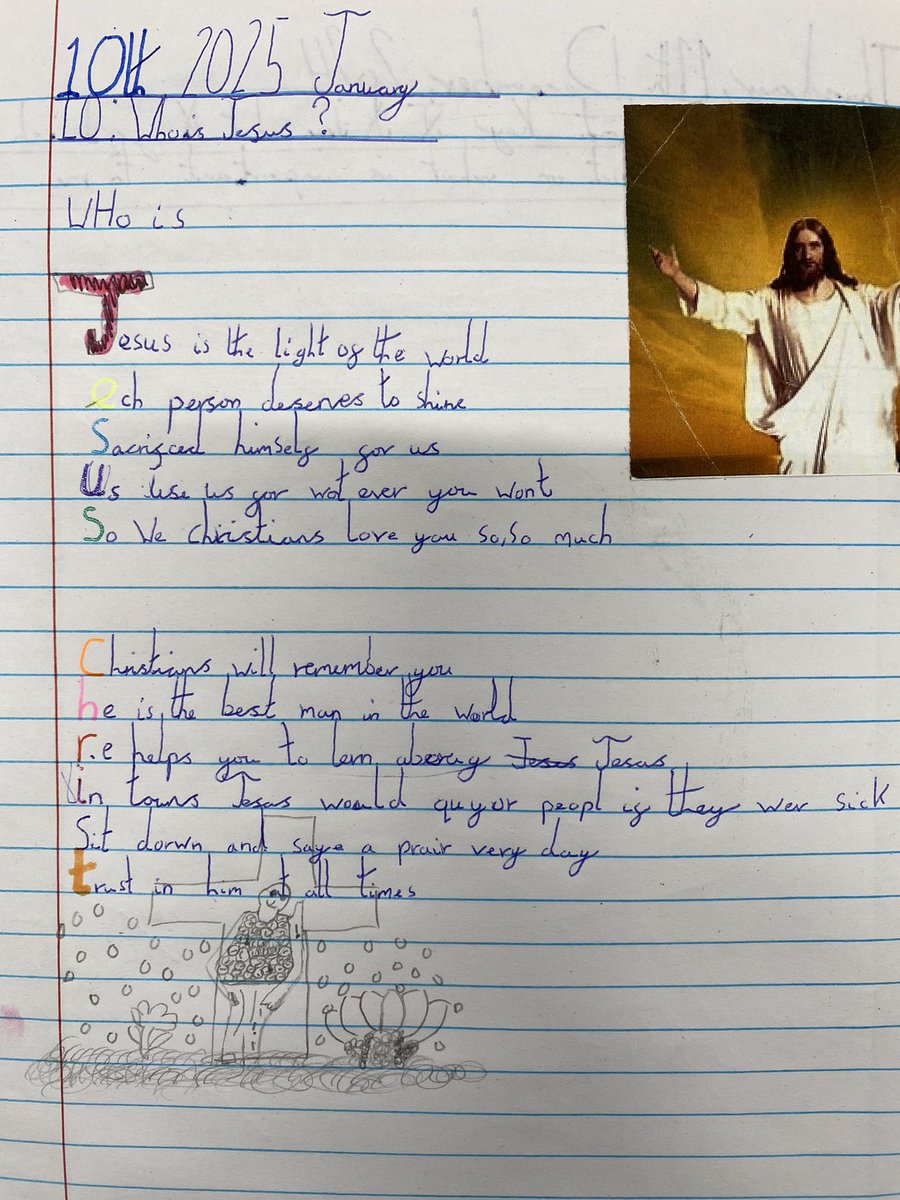 10th 2025 January
10. Who is Jesus ?
WHo is
Jesus is the light of the world
ech person deserves to shine
Sacrifced himself for us
Us use us for wot ever you wont
So We Christians love you so, so much
Christians will remember you
he is the best man in the world
r.e helps you to lern Jesus Jesus
in towns Jesus would people if they wer sick
Sit dorwn and saye a prair very day
trust in him at all times